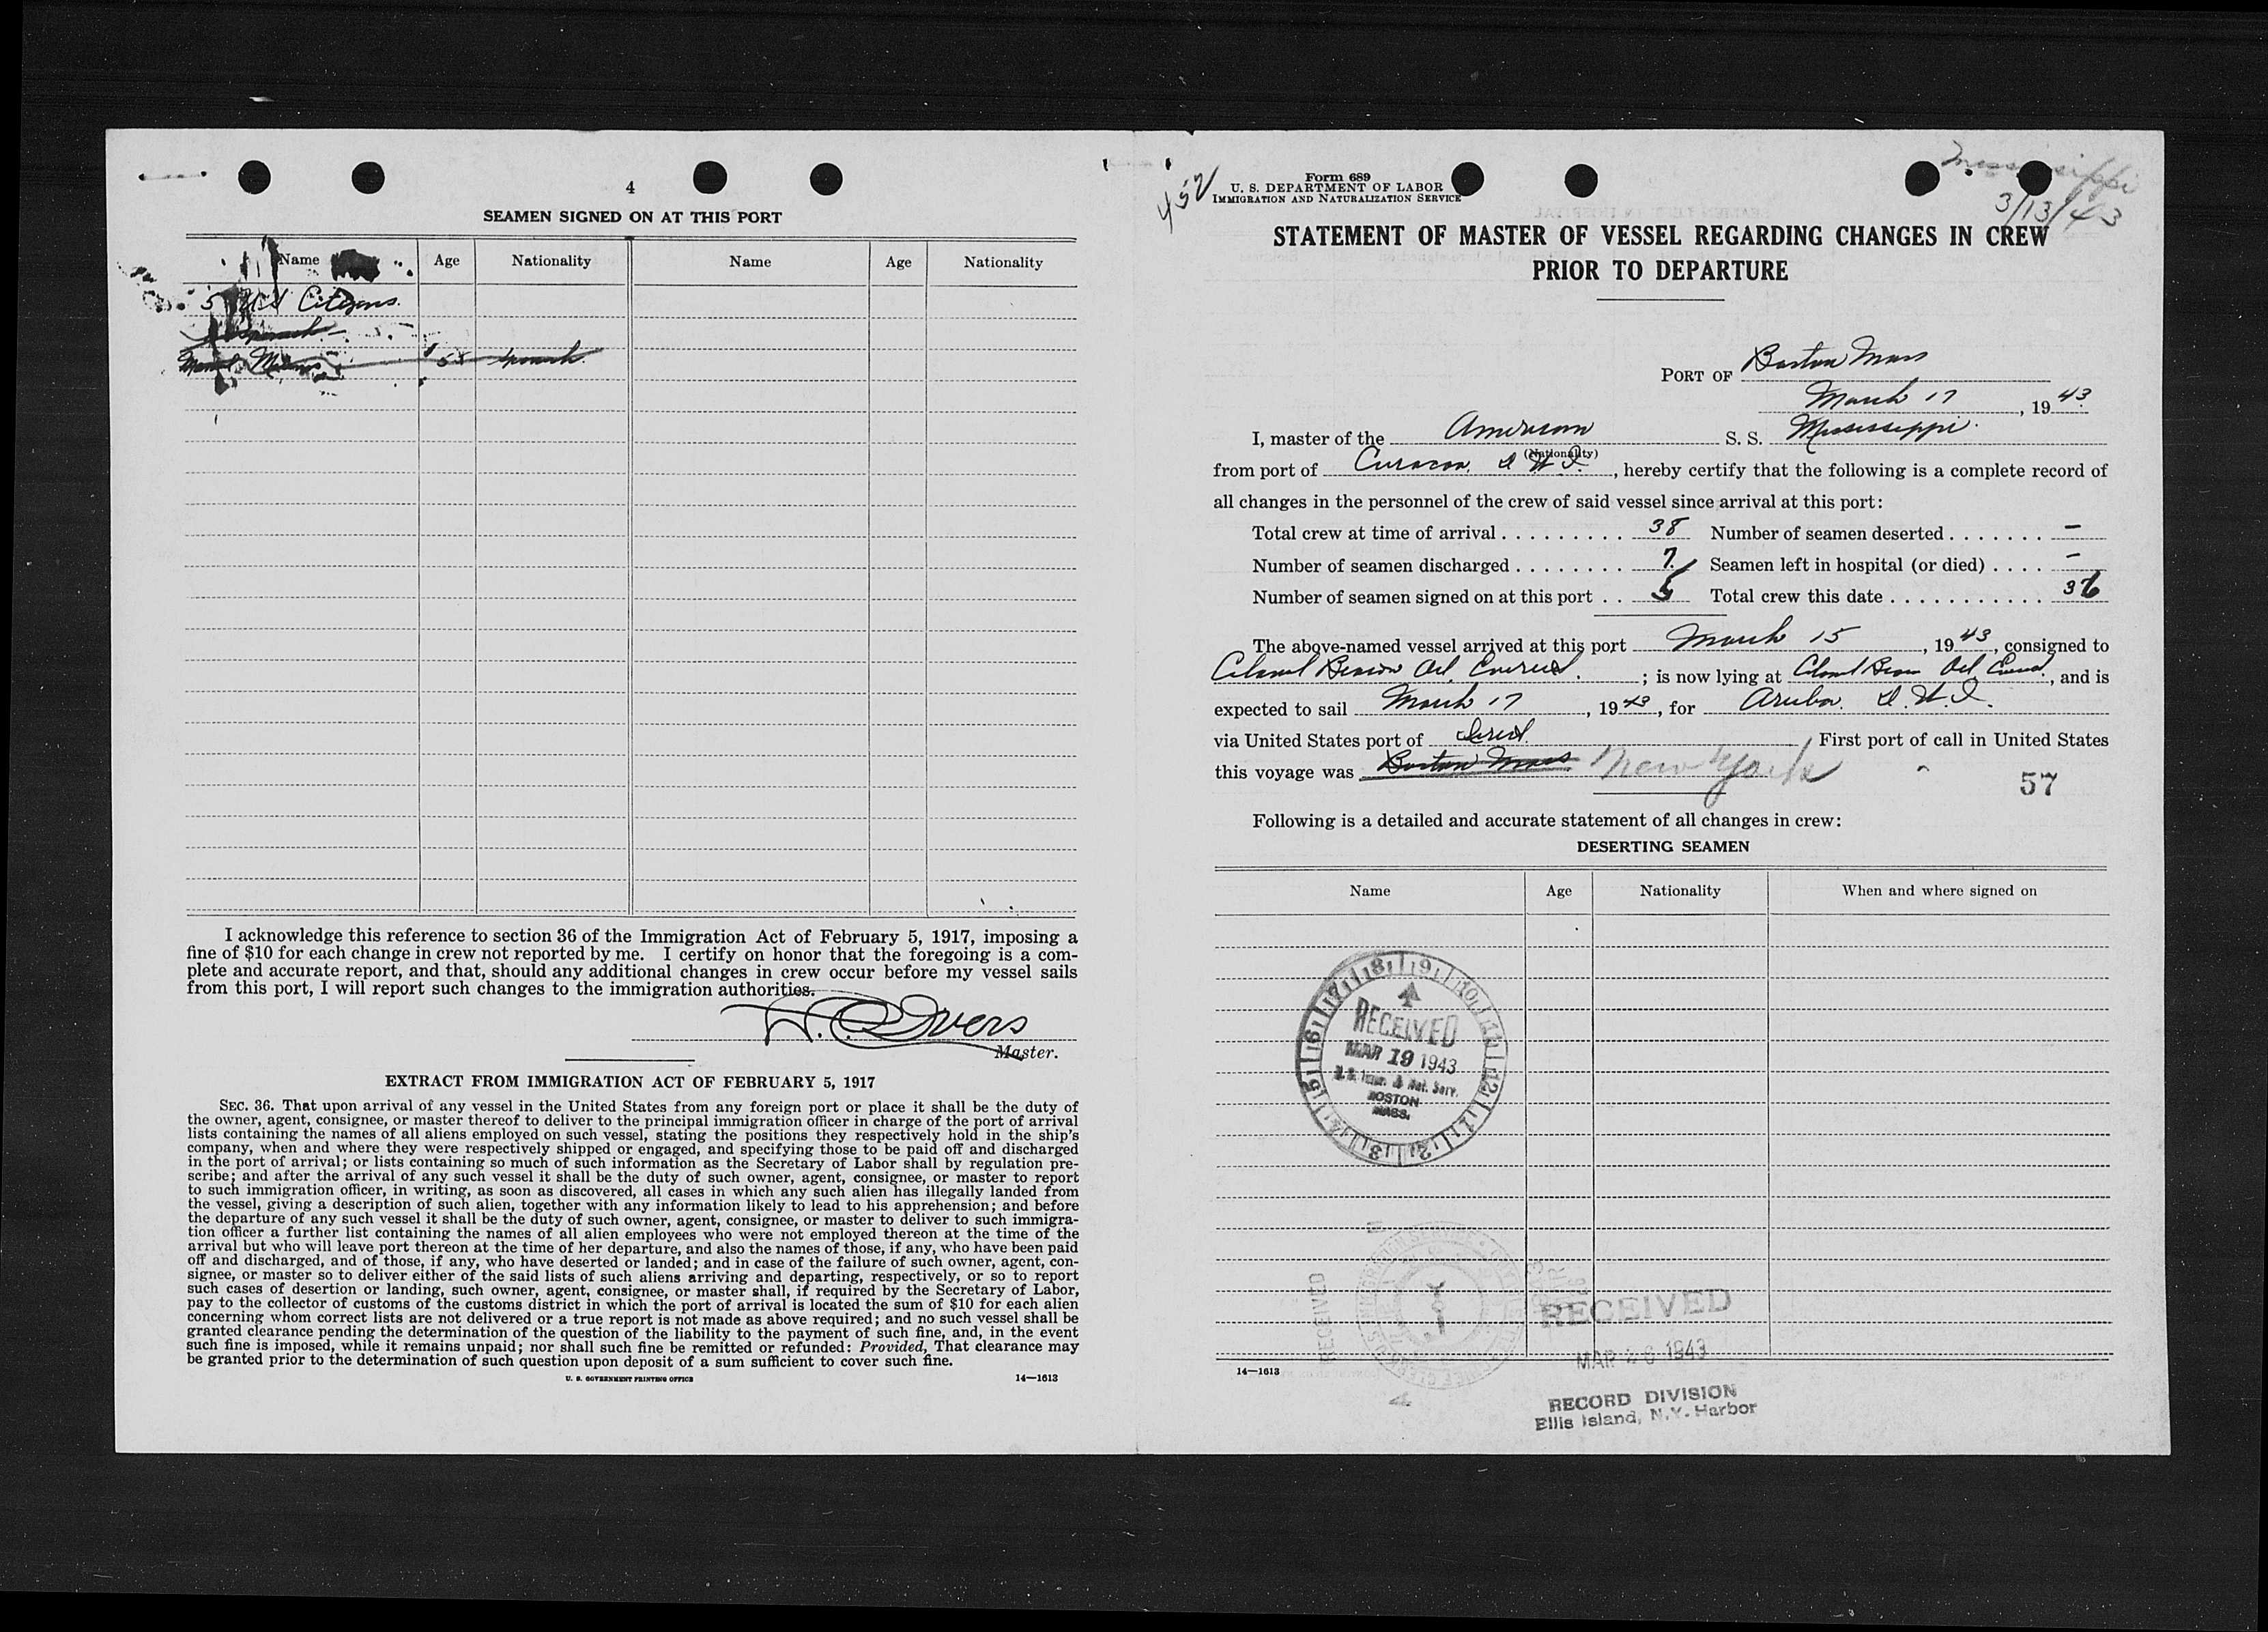 4
SEAMEN SIGNED ON AT THIS PORT
Name Age Nationality Name Age Nationality
5 U.S. Citizens.
Spanish
Manuel 58 Spanish
I acknowledge this reference to section 36 of the Immigration Act of February 5, 1917, imposing a
fine of $10 for each change in crew not reported by me. I certify on honor that the foregoing is a com-
plete and accurate report, and that, should any additional changes in crew occur before my vessel sails
from this port, I will report such changes to the immigration authorities.
Master.
EXTRACT FROM IMMIGRATION ACT OF FEBRUARY 5, 1917
SEC. 36. That upon arrival of any vessel in the United States from any foreign port or place it shall be the duty of
the owner, agent, consignee, or master thereof to deliver to the principal immigration officer in charge of the port of arrival
lists containing the names of all aliens employed on such vessel, stating the positions they respectively hold in the ship's
company, when and where they were respectively shipped or engaged, and specifying those to be paid off and discharged
in the port of arrival; or lists containing so much of such information as the Secretary of Labor shall by regulation pre-
scribe; and after the arrival of any such vessel it shall be the duty of such owner, agent, consignee, or master to report
to such immigration officer, in writing, as soon as discovered, all cases in which any such alien has illegally landed from
the vessel, giving a description of such alien, together with any information likely to lead to his apprehension; and before
the departure of any such vessel it shall be the duty of such owner, agent, consignee, or master to deliver to such immigra-
tion officer a further list containing the names of all alien employees who were not employed thereon at the time of the
arrival but who will leave port thereon at the time of her departure, and also the names of those, if any, who have been paid
off and discharged, and of those, if any, who have deserted or landed; and in case of the failure of such owner, agent, con-
signee, or master so to deliver either of the said lists of such aliens arriving and departing, respectively, or so to report
such cases of desertion or landing, such owner, agent, consignee, or master shall, if required by the Secretary of Labor,
pay to the collector of customs of the customs district in which the port of arrival is located the sum of $10 for each alien
concerning whom correct lists are not delivered or a true report is not made as above required; and no such vessel shall be
granted clearance pending the determination of the question of the liability to the payment of such fine, and, in the event
such fine is imposed, while it remains unpaid; nor shall such fine be remitted or refunded: Provided, That clearance may
be granted prior to the determination of such question upon deposit of a sum sufficient to cover such fine.
U. S. GOVERNMENT PRINTING OFFICE 14—1613
452
Form 689
U. S. DEPARTMENT OF LABOR
IMMIGRATION AND NATURALIZATION SERVICE
Mississippi
3/13/43
STATEMENT OF MASTER OF VESSEL REGARDING CHANGES IN CREW
PRIOR TO DEPARTURE
PORT OF Boston Mass
March 17, 1943
I, master of the American S. S. Mississippi.
(Nationality)
from port of Curacoa, D W I., hereby certify that the following is a complete record of
all changes in the personnel of the crew of said vessel since arrival at this port:
Total crew at time of arrival 38 Number of seamen deserted –
Number of seamen discharged 7 Seamen left in hospital (or died) –
Number of seamen signed on at this port 5 Total crew this date 36
The above-named vessel arrived at this port March 15, 1943, consigned to
Colonial Beacon Oil, Everett.; is now lying at Colonial Beacon Oil, Everett, and is
expected to sail March 17, 1943, for Aruba. D.W.I.
via United States port of Direct. First port of call in United States
this voyage was Boston Mass New York
57
Following is a detailed and accurate statement of all changes in crew:
DESERTING SEAMEN
Name Age Nationality When and where signed on
RECEIVED
MAR 19 1943
U. S. Imm. & Nat. Serv.
BOSTON
MASS.
RECEIVED
RECEIVED
MAR 26 1943
14—1613
RECORD DIVISION
Ellis Island, N.Y. Harbor